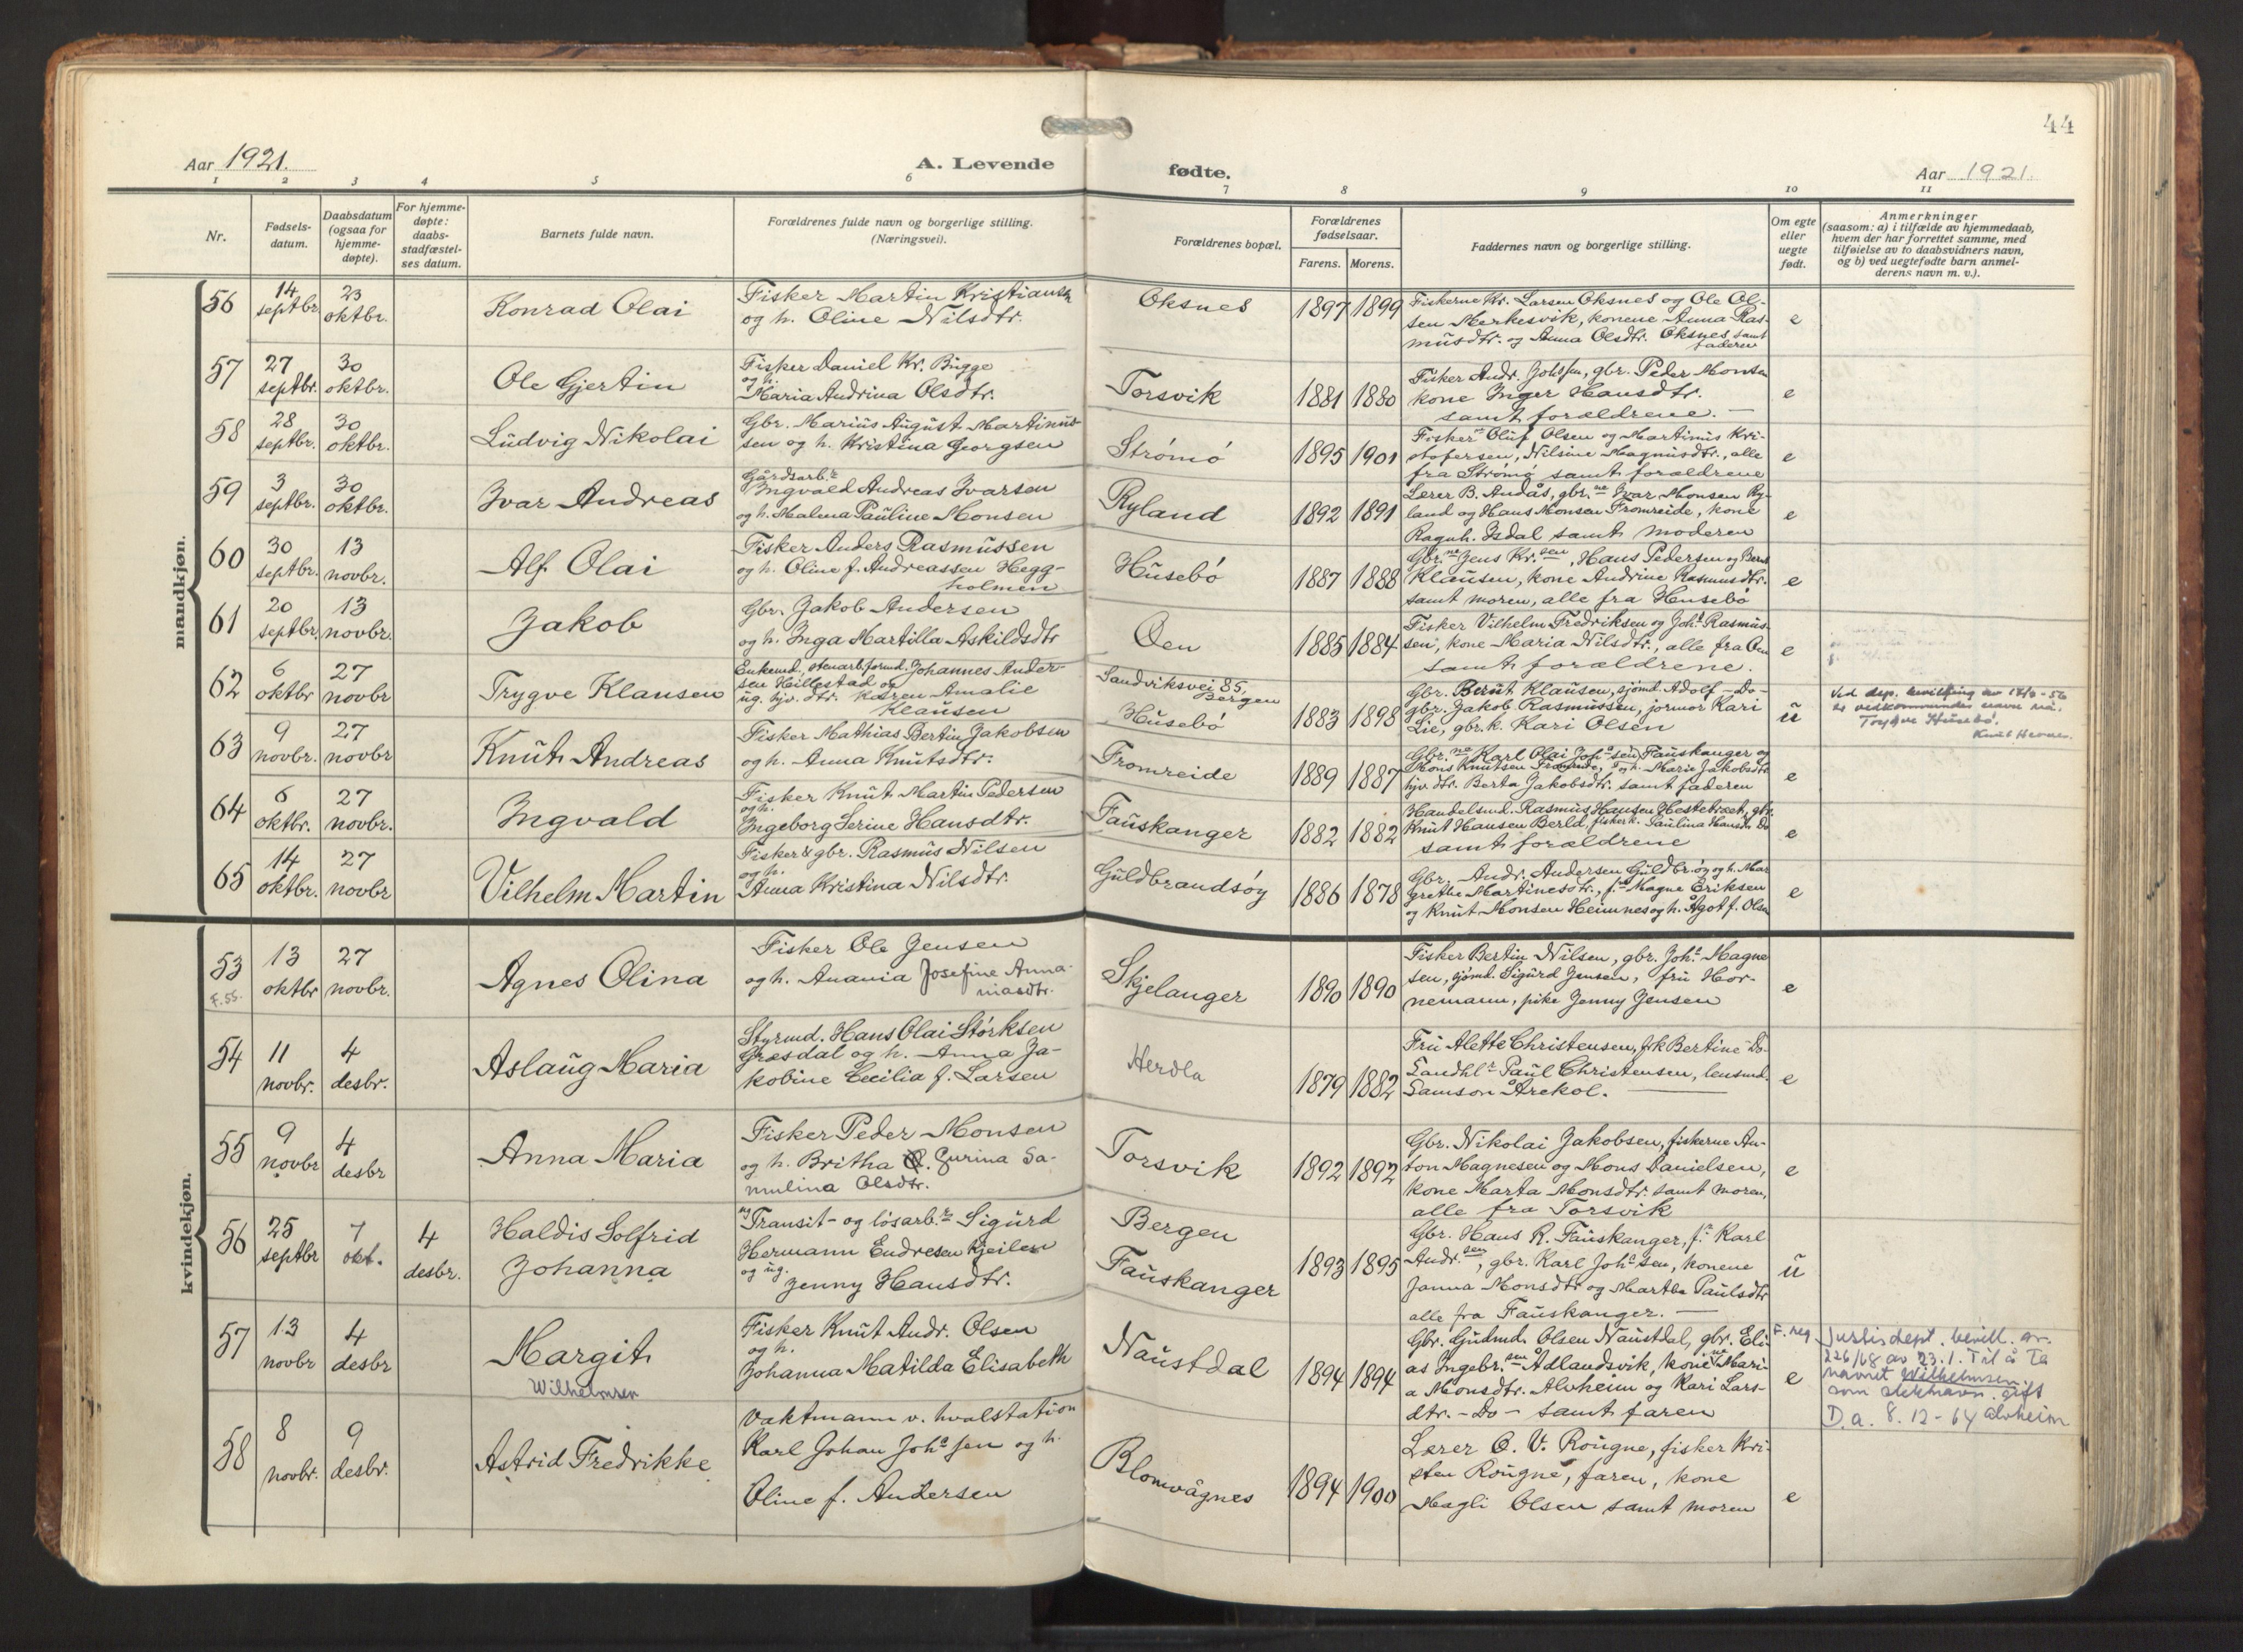 44
Aar 1921.
A. Levende fødte.
Aar 1921.
1 2 3 4 5 6 7 8 9 10 11
Nr.
Fødsels-
datum.
Daabsdatum
(ogsaa for
hjemme-
døpte).
For hjemme-
døpte:
daabs-
stadfæstel-
ses datum.
Barnets fulde navn.
Forældrenes fulde navn og borgerlige stilling.
(Næringsvei).
Forældrenes bopæl.
Forældrenes
fødselsaar.
Farens. Morens.
Faddernes navn og borgerlige stilling.
Om egte
eller
uegte
født.
Anmerkninger
(saasom: a) i tilfælde av hjemmedaab,
hvem der har forrettet samme, med
tilføielse av to daabsvidners navn,
og b) ved uegtefødte barn anmel-
derens navn m. v.).
mandkjøn.
56
14
septbr.
23
oktbr.
Konrad Olai
Fisker Martin Kristiansen
og h. Oline Nilsdtr.
Oksnes
1897 1899
Fiskerne Kr. Larsen Oksnes og Ole Ol-
sen Merkesvik, konene Anna Ras-
musdtr. og Anna Olsdtr. Oksnes samt
faderen
e
57
27
septbr.
30
oktbr.
Ole Gjertin
Fisker Daniel Kr. Bugge
og h.
Maria Andrina Olsdtr.
Torsvik
1881 1880
Fisker Andr. Johssen, gbr. Peder Monsen
kone Inger Hansdtr.
samt forældrene. —
e
58
28
septbr.
30
oktbr.
Ludvig Nikolai
Gbr. Marius August Martinus-
sen og h. Kristina Georgsen
Strömö
1895 1901
Fiskerne Oluf Olsen og Martinus Kri-
stofersen, Nilsine Magnusdtr., alle
fra Strömö samt forældrene
e
59
3
septbr.
30
oktbr.
Ivar Andreas
Gårdsarb.r
Ingvald Andreas Ivarsen
og h. Malena Pauline Monsen
Ryland
1892 1891
Lærer B. Andås, gbr.ne Ivar Monsen Ry-
land og Hans Monsen Fromreide, kone
Ragnh. Isdal samt moderen
e
60
30
septbr.
13
novbr.
Alf Olai
Fisker Anders Rasmussen
og h. Oline f. Andreassen Hegg-
holmen
Husebö
1887 1888
Gbr.ne Jens Kr.sen, Hans Pedersen og Bernt
Klausen, kone Andrine Rasmusdtr.
samt moren, alle fra Husebö
e
61
20
septbr.
13
novbr.
Jakob
Gbr. Jakob Andersen
og h. Inga Martilla Askildsdtr
Öen
1885 1884
Fisker Vilhelm Fredriksen og Joh.s Rasmus-
sen, kone Maria Nilsdtr., alle fra Öen
samt forældrene.
e
62
6
oktbr
27
novbr
Trygve Klausen
Enkemd. stenarb.formd. Johannes Ander-
sen Hillestad og
ug. hjv. dtr. Karen Amalie
Klausen
Sandviksvei 85,
Bergen
Husebö
1883 1898
Gbr. Bernt Klausen, sjömd. Adolf – Do –
gbr. Jakob Rasmussen, jormor Kari
Lie, gbr.k. Kari Olsen
u
Ved dep. bevilling av 17/0-56
er vedkommendes navn nå.
Trygve Husebö.
63
9
novbr.
27
novbr
Knut Andreas
Fisker Mathias Bertin Jakobsen
og h. Anna Knutsdtr.
Fromreide
1889 1887
Gbr.ne Karl Olai Joh.sen Fauskanger og
Mons Knutsen Fromreide, og h. Marie Jakobsdtr.
hjv. dtr. Berta Jakobsdtr. samt faderen
e
64
6
oktbr.
27
novbr.
Ingvald
Fisker Knut Martin Pedersen
og h.
Ingeborg Serine Hansdtr.
Fauskanger
1882 1882
Handelsmd. Rasmus Hansen Hestetræet, gbr.
Knut Hansen Berld, fisker k. Paulina Hansdtr Do
samt forældrene
e
65
14
oktbr.
27
novbr
Vilhelm Martin
Fisker & gbr. Rasmus Nilsen
og h.
Anna Kristina Nilsdtr.
Guldbrandsöy
1886 1878
Gbr. Andr. Andersen Guldbr.öy og h. Mar
grethe Martinesdtr., f.r Magne Eriksen
og Knut Monsen Heimnes og h. Ågot f. Olsen
e
kvindekjøn.
53
F. 55.
13
oktbr
27
novbr.
Agnes Olina
Fisker Ole Jensen
og h. Anania Josefine Anna-
niasdtr.
Skjelanger
1890 1890
Fisker Bertin Nilsen, gbr. Joh.s Magne
sen, sjömd. Sigurd Jensen, fru Hor-
nemann, pike Jenny Jensen
e
54
11
novbr.
4
desbr.
Aslaug Maria
Styrmd. Hans Olai Störksen
Græsdal og h. Anna Ja-
kobine Cecilia f. Larsen
Herdla
1879 1882
Fru Alette Christensen, frk Bertine Do.
Landhl.r Paul Christensen, lensmd.
Samson Årekol. —
e
55
9
novbr
4
desbr
Anna Maria
Fisker Peder Monsen
og h. Britha Gurina Sa-
mulina Olsdtr.
Torsvik
1892 1892
Gbr. Nikolai Jakobsen, fiskerne An-
ton Magnesen og Mons Danielsen,
kone Marta Monsdtr. samt moren,
alle fra Torsvik
e
56
25
septbr
7
okt.
4
desbr.
Haldis Solfrid
Johanna
ug Transit- og lösarb.r Sigurd
Hermann Endresen Kjeilen
og ug.
Jenny Hansdtr.
Bergen
Fauskanger
1893 1895
Gbr. Hans R. Fauskanger, f.r Karl
Andr.sen, gbr. Karl Joh.sen, konene
Janna Monsdtr og Martha Paulsdtr
alle fra Fauskanger. —
u
57
13
novbr
4
desbr
Margit
Wilhelmsen
Fisker Knut Andr. Olsen
og h.
Johanna Matilda Elisabeth
Naustdal
1894 1894
Gbr. Gudmd. Olsen Naustdal, gbr. Eli-
as Ingebr.sen Ådlandsvik, kone.ne Mari-
a Monsdtr. Alvheim og Kari Lars-
dtr. – Do – samt faren
e
F. reg
Justisdept. bevill. nr.
226/68 av 23.1. Til å ta
navnet Wilhelmsen.
som slektnavn. gift
D.a. 8.12-64 Alvheim
58
8
novbr.
9
desbr.
Astrid Fredrikke
Vaktmann v. hvalstation
Karl Johan Joh.sen og h.
Oline f. Andersen
Blomvågnes
1894 1900
Lærer O. V. Rougne, fisker Kri-
sten Rougne, faren, kone
Magli Olsen samt moren
e